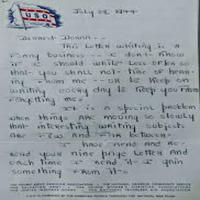 USO
July 28, 1944
Dearest Donna:-
This letter writing is a
funny business - I don't know
if I should write less or so
that you shall not tire of hear-
ing from me - or to keep on
writing every day to keep you from
forgetting me.
It is a special problem
when things are moving so slowly
that interesting writing subjects
are few and far between.
I have read and re-
read your nine page letter and
each time I read it I gain
something from it -